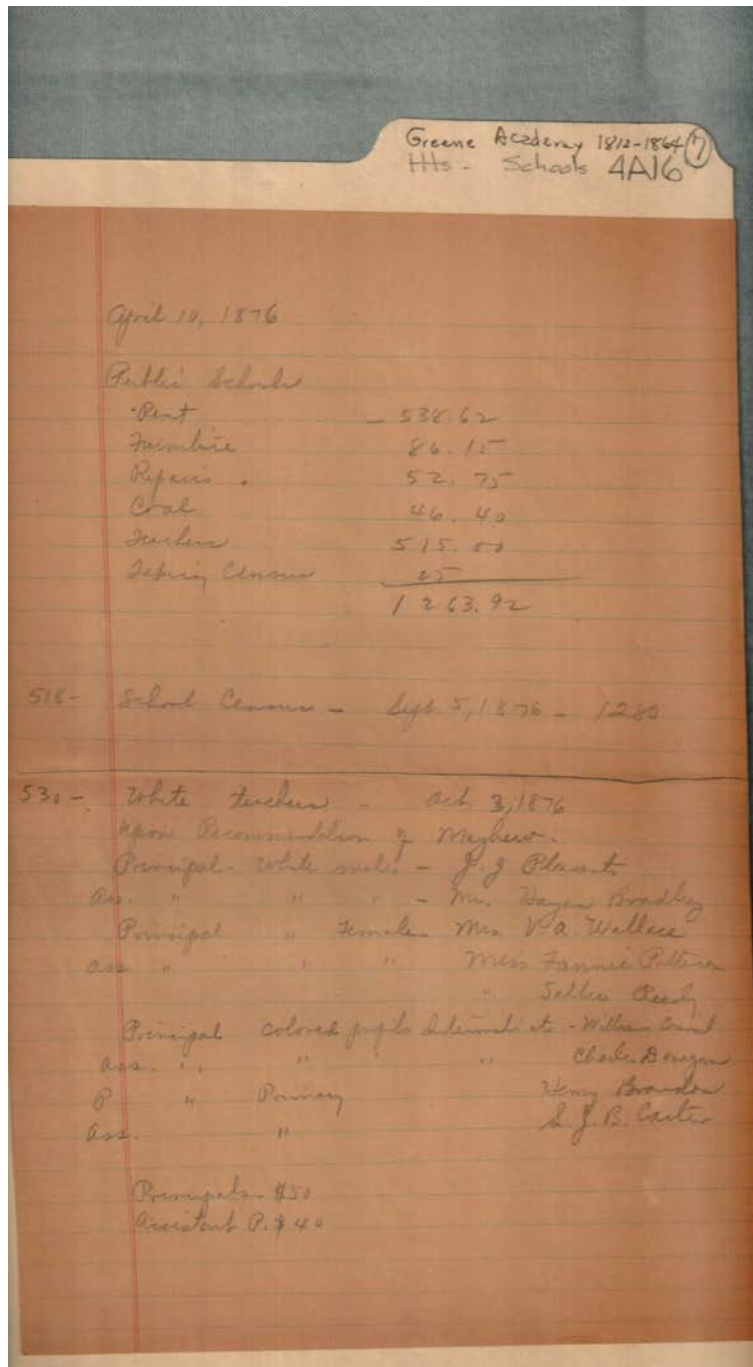 Greene Academy 1812-1864 (7)
Hts - Schools 4A16
April 10, 1876
Public Schools
Rent - 538.62
Furniture 86.15
Repairs . 52.75
Coal 46.40
Teachers 515.00
Taking Census 25
1263.92
518- School Census - Sept 5, 1876 - 1280
530- White teachers - Oct. 3, 1876
Upon Recommendation of Mayhew.
Principal - White male - J. J. Pleasants
Ass. " " " - Mr. Hayen Bradley
Principal " Female Mrs V. A. Wallace
Ass " " " Miss Fannie Patterson
" Sallie
Principal colored pupils Intermediate - William
Ass. " " " Charles Donegan
P " Primary Henry Brandon
Ass. " S. J. B. Carter
Principals - $50
Assistant P. $40